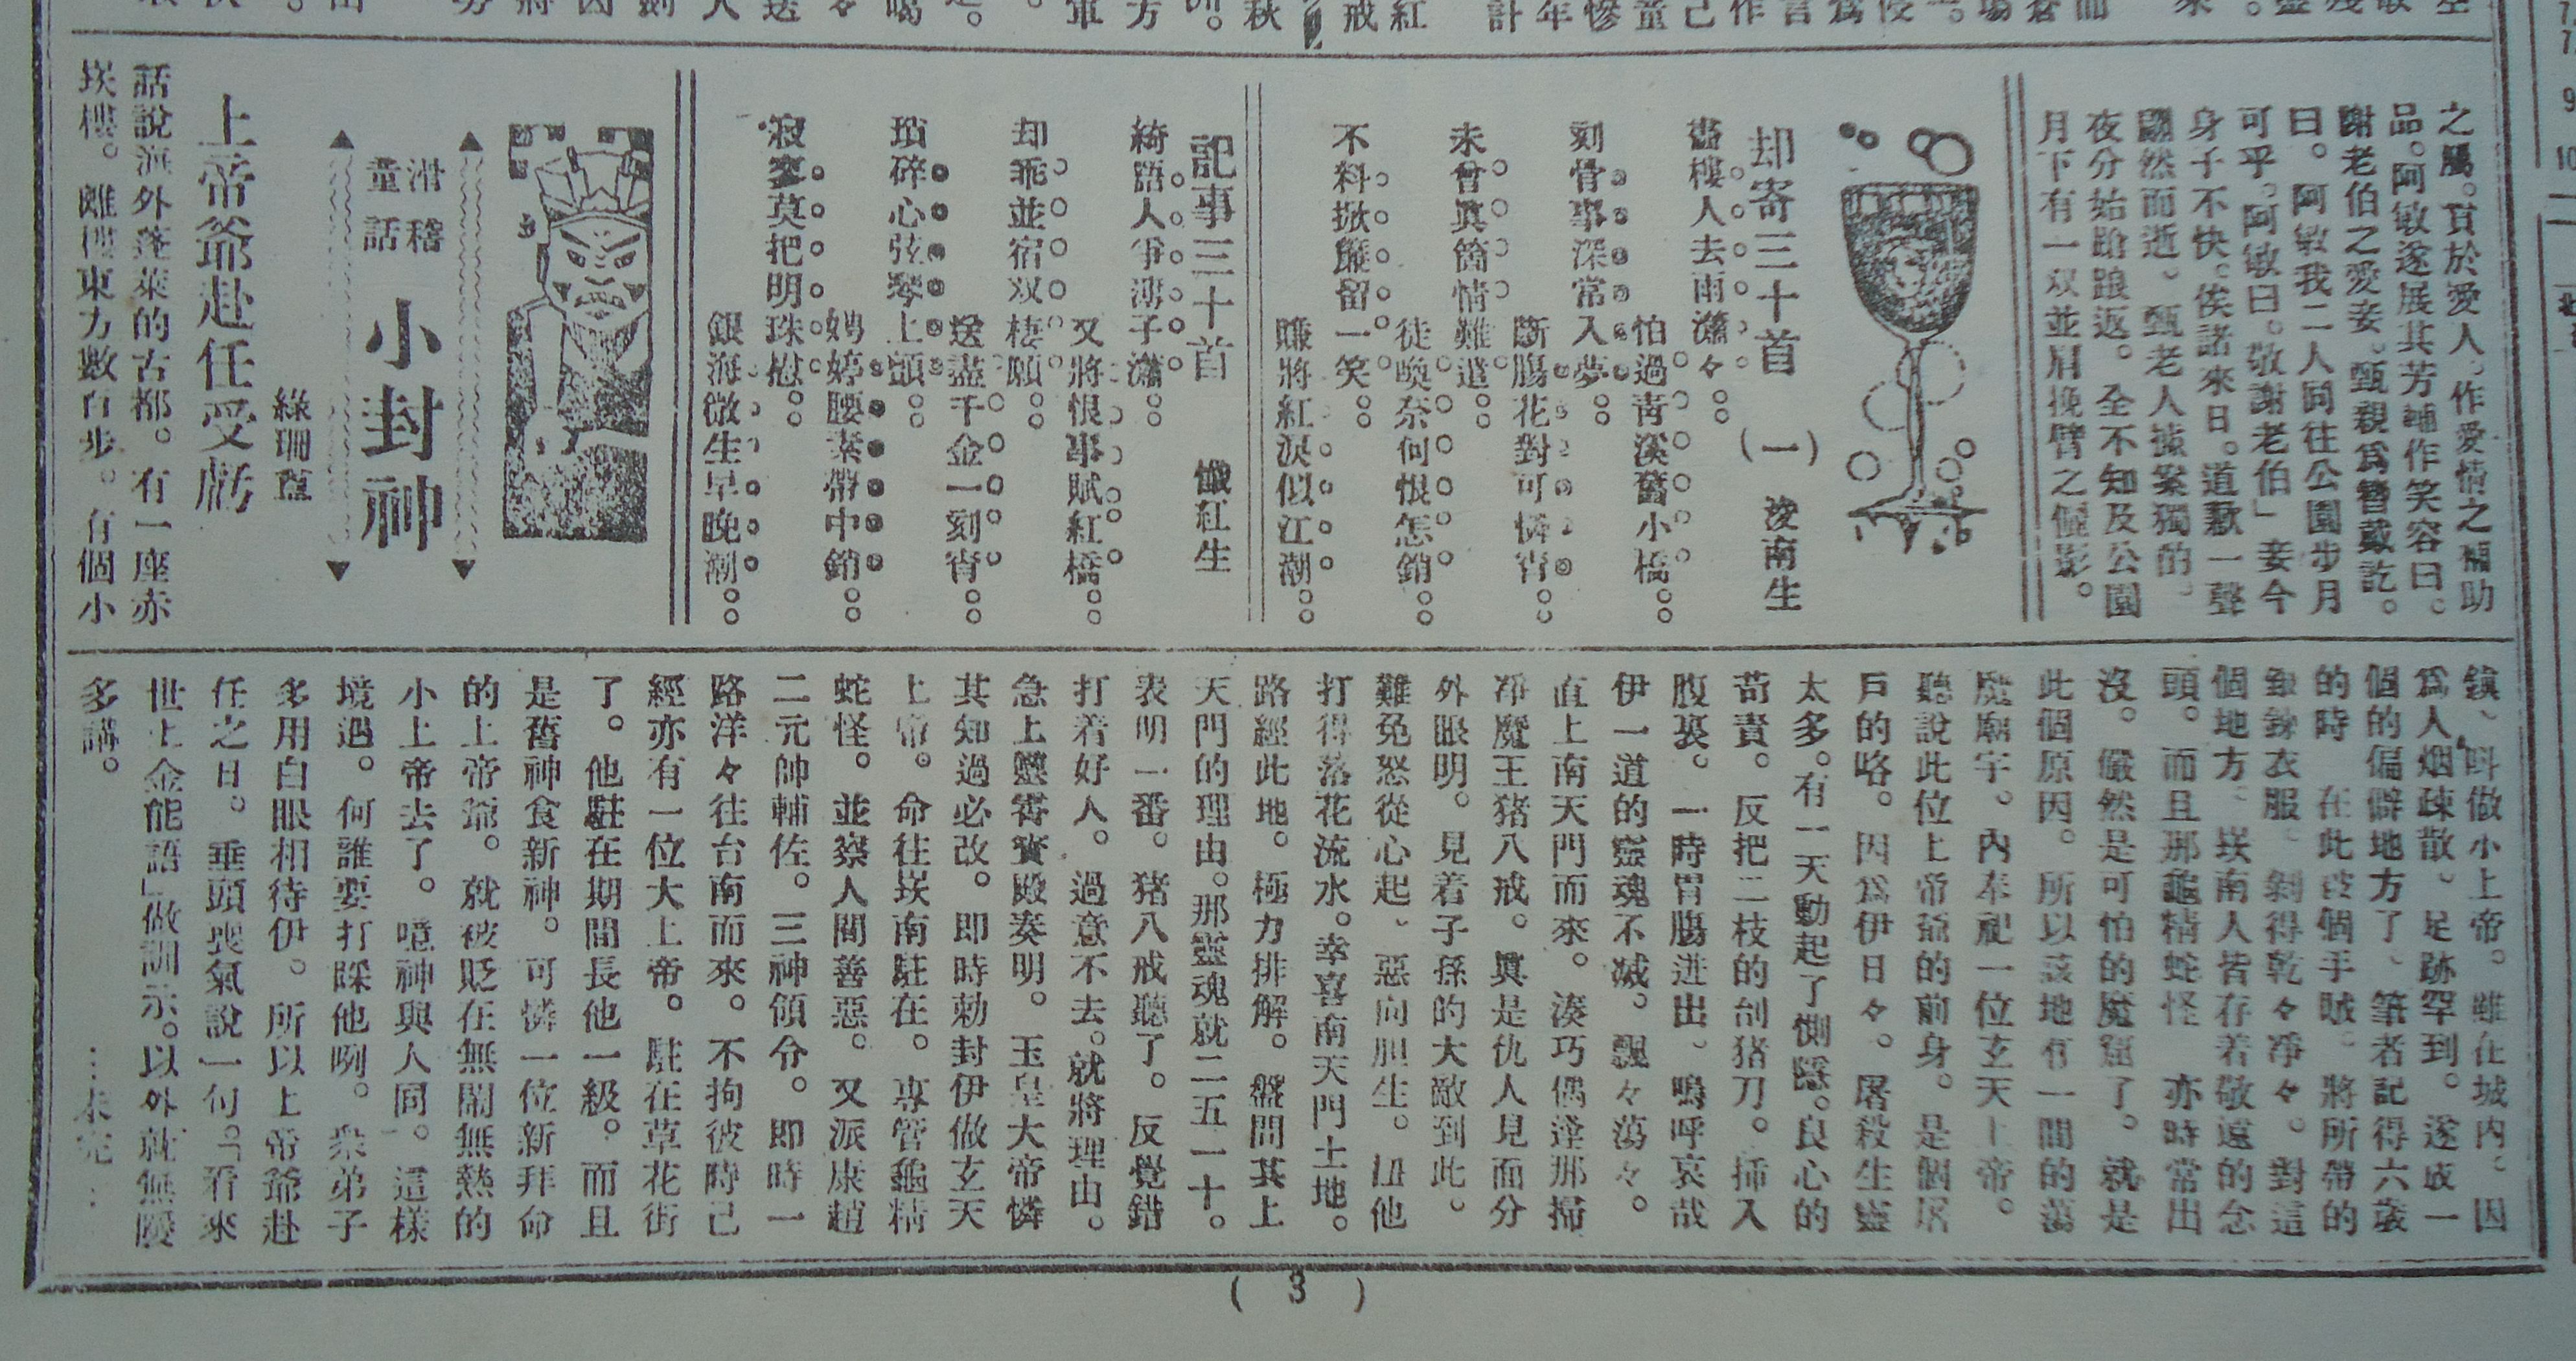 之屬。貰於愛人。作愛情之補助
品。阿敏遂展其芳輔作笑容曰。
謝老伯之愛妾。甄親為簪戴訖。
曰。阿敏我二人同往公園步月
可乎。阿敏曰。敬謝老伯」妾今
身子不快。俟諸來日。道歉一聲
翩然而逝。甄老人據案獨酌。
夜分始踉踉返。全不知及公園
月下有一双並肩挽臂之儷影。
却寄三十首（一）浚南生
畫樓人去雨瀟々。
怕過靑溪舊小橋。
刻骨事深常入夢。
斷腸花對可憐宵。
未曾眞箇情難遣。
徒喚奈何恨怎銷。
不料掀髯留一笑。
賺將紅淚似江潮。
記事三十首 懺紅生
綺語人爭薄子瀟。
又將恨事賦紅橋。
却乖並宿双棲願。
送盡千金一刻宵。
瑣碎心弦琴上韻。
娉婷腰素帶中銷。
寂寥莫把明珠慰。
銀海微生早晚潮。
滑稽
童話
小封神
綠珊盦
上帝爺赴任受虧
話說海外蓬萊的古都。有一座赤
崁樓。離樓東方數百步。有個小
鎮、叫做小上帝。雖在城內。因
為人烟疎散、足跡罕到。遂成一
個的偏僻地方了、筆者記得六歲
的時 在此被個手賊、將所帶的
銀錢衣服。剝得乾々凈々。對這
個地方、崁南人皆存着敬遠的念
頭。而且那龜精蛇怪 亦時常出
沒。儼然是可怕的魔窟了。就是
此個原因。所以該地有一間的蕩
魔廟宇。內奉祀一位玄天上帝。
聽說此位上帝爺的前身。是個屠
戶的咯。因為伊日々。屠殺生靈
太多。有一天動起了惻隱。良心的
苛責。反把二枝的刣猪刀。揷入
腹裏。一時胃腸迸出、嗚呼哀哉
伊一道的靈魂不滅。飄々蕩々。
直上南天門而來。湊巧偶逢那掃
凈魔王猪八戒。眞是仇人見面分
外眼明。見着子孫的大敵到此。
難免怒從心起、惡向胆生。扭他
打得落花流水。幸喜南天門土地。
路經此地。極力排解。盤問其上
天門的理由。那靈魂就二五一十。
表明一番。猪八戒聽了。反覺錯
打着好人。過意不去。就將理由。
急上靈霄寶殿奏明。玉皇大帝憐
其知過必改。即時勅封伊做玄天
上帝。命往崁南駐在。專管龜精
蛇怪。並察人間善惡。又派康趙
二元帥輔佐。三神領令。即時一
路洋々往台南而來。不拘彼時已
經亦有一位大上帝。駐在草花街
了。他駐在期間長他一級。而且
是舊神食新神。可憐一位新拜命
的上帝爺。就被貶在無鬧無熱的
小上帝去了。噫神與人同。這樣
境過。何誰要打睬他咧。衆弟子
多用白眼相待伊。所以上帝爺赴
任之日。垂頭喪氣說一句。「看來
世上金能語」做訓示。以外就無慶
多講。
…未完…
( 3 )